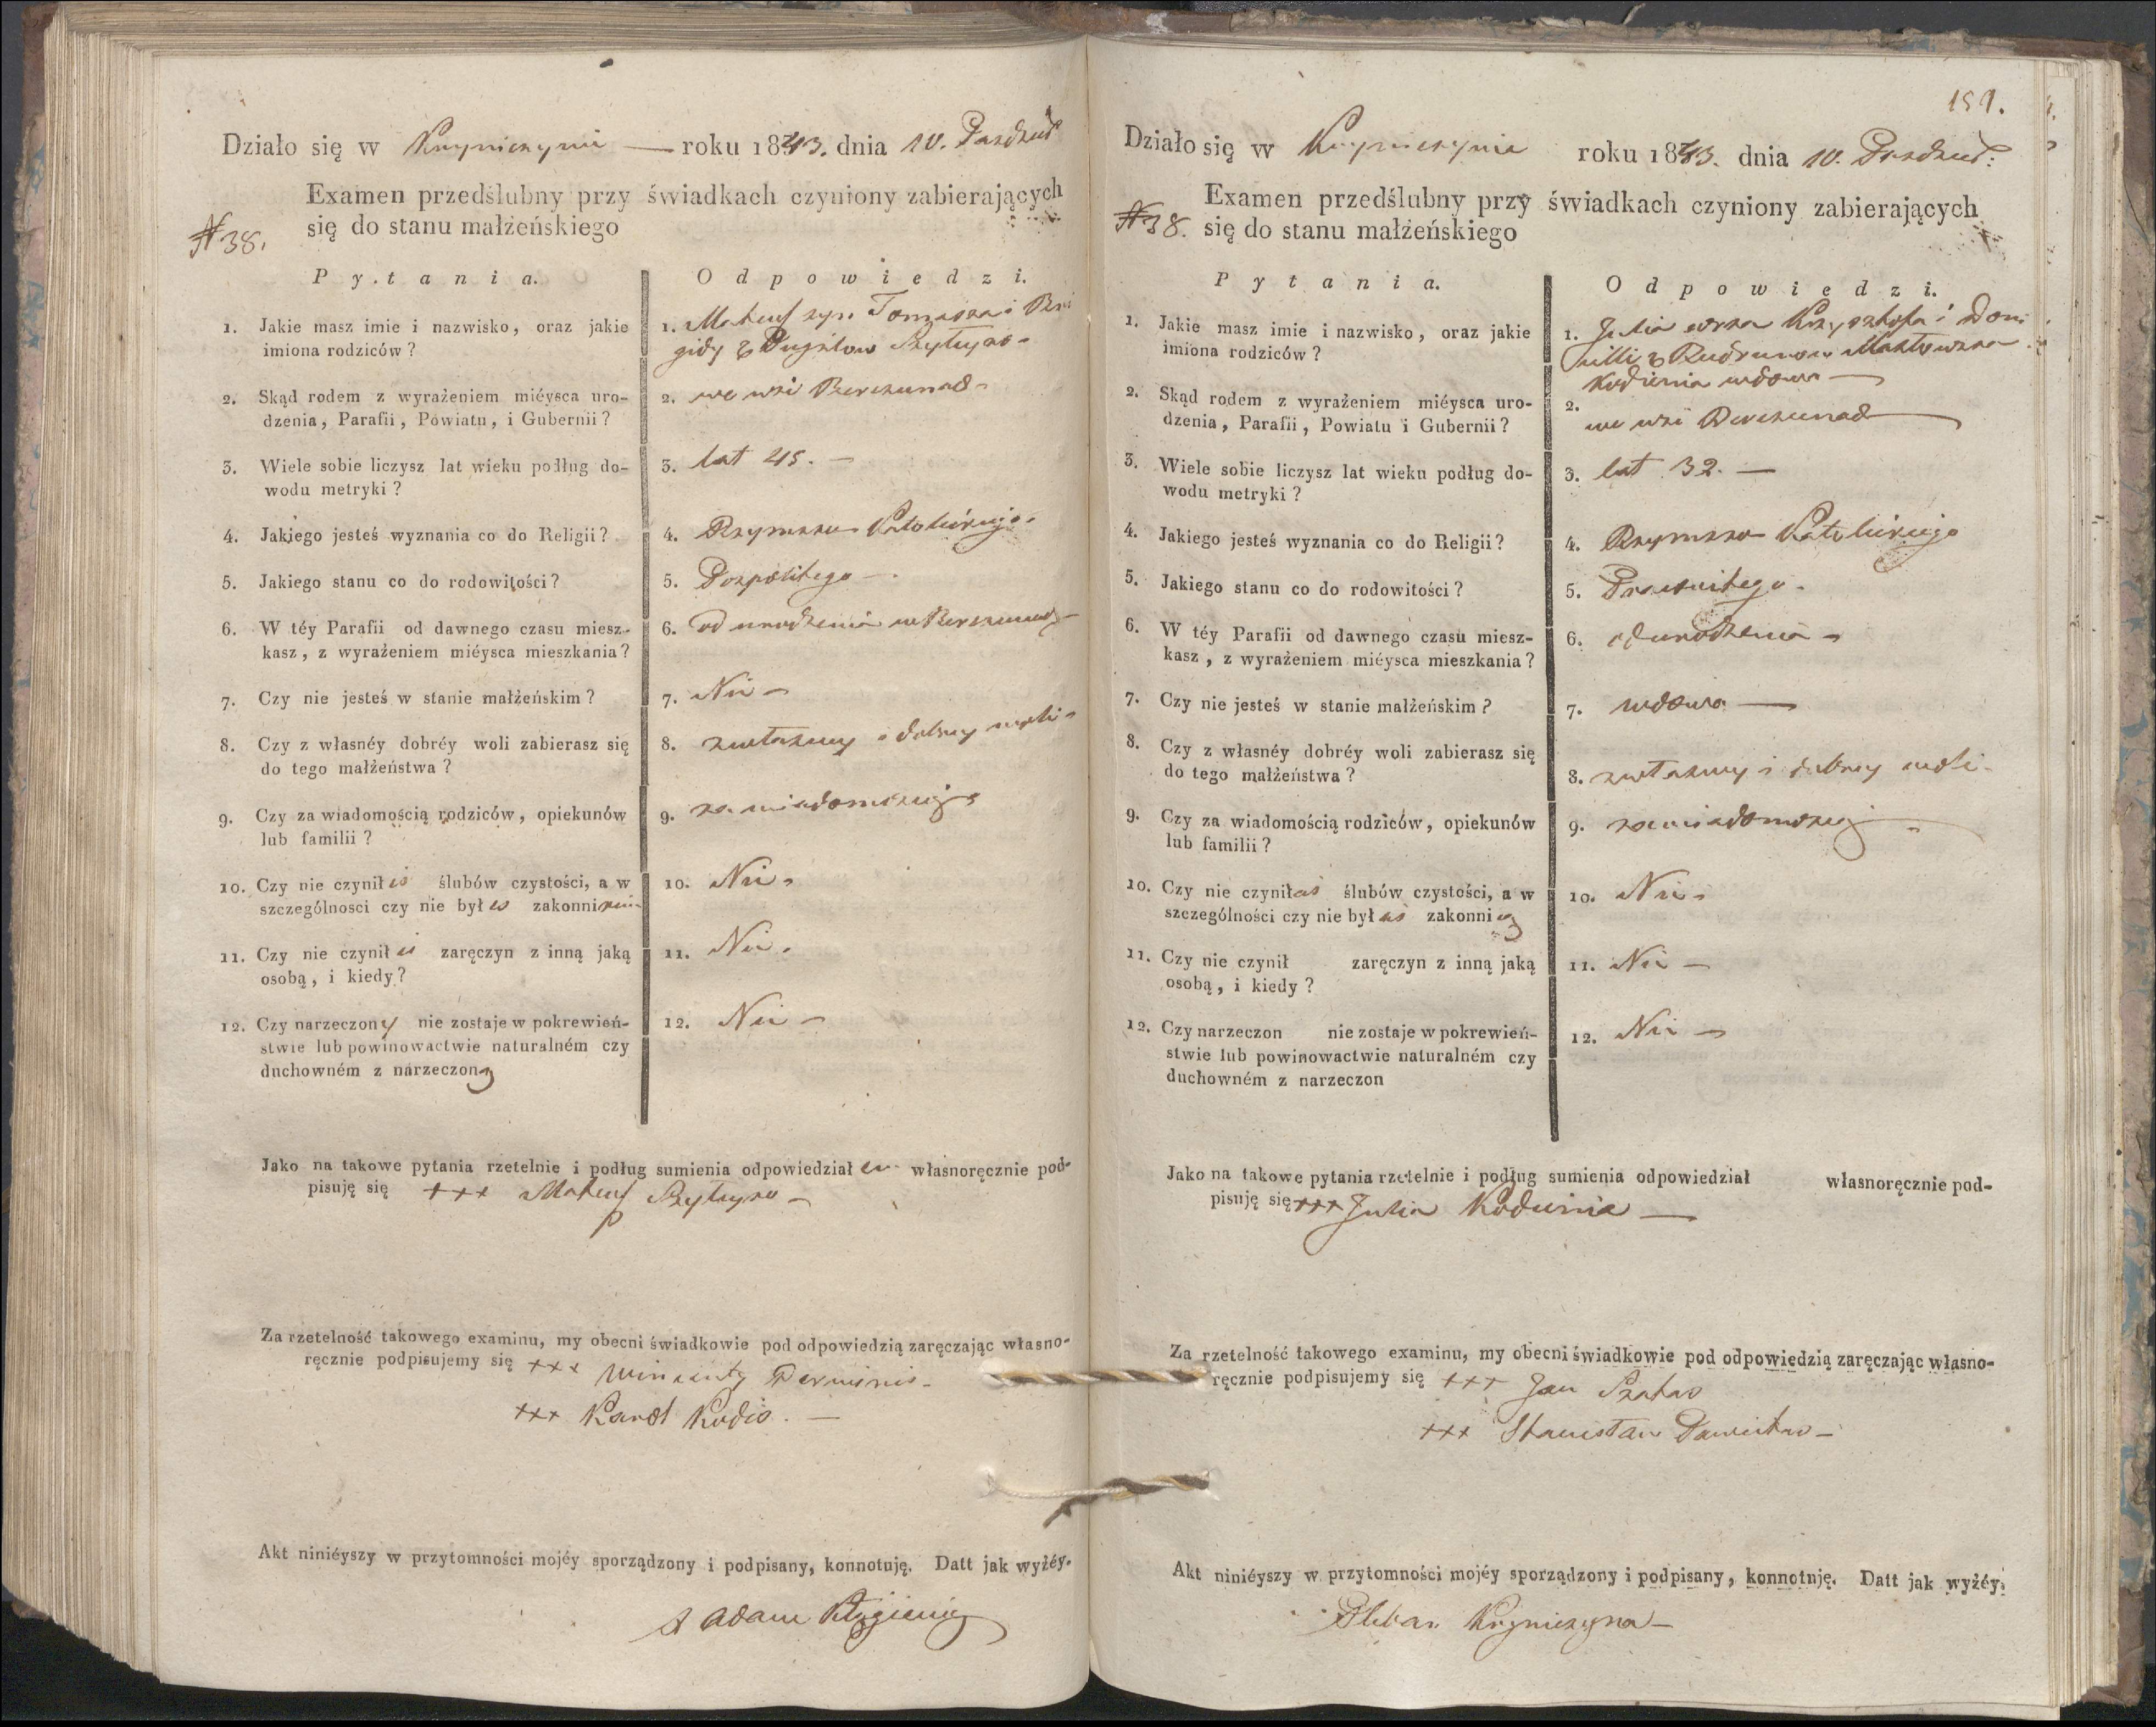 Działo się w Krynicznynie — roku 1843. dnia 10. Pazdzier
Examen przedślubny przy świadkach czyniony zabierających
się do stanu małżeńskiego
N 38.
Pytania.
Odpowiedzi.
1. Jakie masz imie i nazwisko, oraz jakie
imiona rodziców?
1. Mateusz syn Tomasza i Bri
gidy z
2. Skąd rodem z wyrażeniem miéysca uro-
dzenia, Parafii, Powiatu, i Gubernii?
2. we wsi
3. Wiele sobie liczysz lat wieku podług do-
wodu metryki?
3. lat 45. —
4. Jakiego jesteś wyznania co do Religii?
4. Rzymsko Katolickiego
5. Jakiego stanu co do rodowitości?
5. Pospolitego —
6. W téy Parafii od dawnego czasu miesz-
kasz, z wyrażeniem miéysca mieszkania?
6. od urodzenia w
7. Czy nie jesteś w stanie małżeńskim?
7. Nie —
8. Czy z własnéy dobréy woli zabierasz się
do tego małżeństwa?
8. zwłasney i dobrey woli
9. Czy za wiadomością rodziców, opiekunów
lub familii?
9. za wiadomością
10. Czy nie czynił eś ślubów czystości, a w
szczególnosci czy nie był eś zakonnikiem
10. Nie
11. Czy nie czynił eś zaręczyn z inną jaką
osobą, i kiedy?
11. Nie
12. Czy narzeczony nie zostaje w pokrewień-
stwie lub powinowactwie naturalném czy
duchowném z narzeczoną
12. Nie —
Jako na takowe pytania rzetelnie i podług sumienia odpowiedział em własnoręcznie pod-
pisuję się +++ Mateusz
Za rzetelność takowego examinu, my obecni świadkowie pod odpowiedzią zaręczając własno-
ręcznie podpisujemy się +++ Wincenty
+++ Karol Kodis. —
Akt niniéyszy w przytomności mojéy sporządzony i podpisany, konnotuję. Datt jak wyźéy.
X Adam
151.
Działo się w Krynicznynie roku 1843. dnia 10. Pazdzier:
Examen przedślubny przy świadkach czyniony zabierających
się do stanu małżeńskiego
N 38.
Pytania.
Odpowiedzi.
1. Jakie masz imie i nazwisko, oraz jakie
imiona rodziców?
1. Julia corka Krzysztofa i Dom
wdowa —
2. Skąd rodem z wyrażeniem miéysca uro-
dzenia, Parafii, Powiatu i Gubernii?
2. we wsi
3. Wiele sobie liczysz lat wieku podług do-
wodu metryki?
3. lat 32. —
4. Jakiego jesteś wyznania co do Religii?
4. Rzymsko Katolickiego
5. Jakiego stanu co do rodowitości?
5.
6. W téy Parafii od dawnego czasu miesz-
kasz, z wyrażeniem miéysca mieszkania?
6. od urodzenia —
7. Czy nie jesteś w stanie małżeńskim?
7. wdowa —
8. Czy z własnéy dobréy woli zabierasz się
do tego małżeństwa?
8. zwłasney i dobrey woli
9. Czy za wiadomością rodziców, opiekunów
lub familii?
9. za wiadomością
10. Czy nie czyniłaś ślubów czystości, a w
szczególności czy nie był aś zakonnicą
10. Nie
11. Czy nie czynił zaręczyn z inną jaką
osobą, i kiedy?
11. Nie —
12. Czy narzeczon nie zostaje w pokrewień-
stwie lub powinowactwie naturalném czy
duchowném z narzeczon
12. Nie —
Jako na takowe pytania rzetelnie i podług sumienia odpowiedział własnoręcznie pod-
pisuję się +++ Julia Kodzinia —
Za rzetelność takowego examinu, my obecni świadkowie pod odpowiedzią zaręczając własno-
ręcznie podpisujemy się +++ Jan
+++ Stanisław
Akt niniéyszy w przytomności mojéy sporządzony i podpisany, konnotuję. Datt jak wyźéy.
Pleban